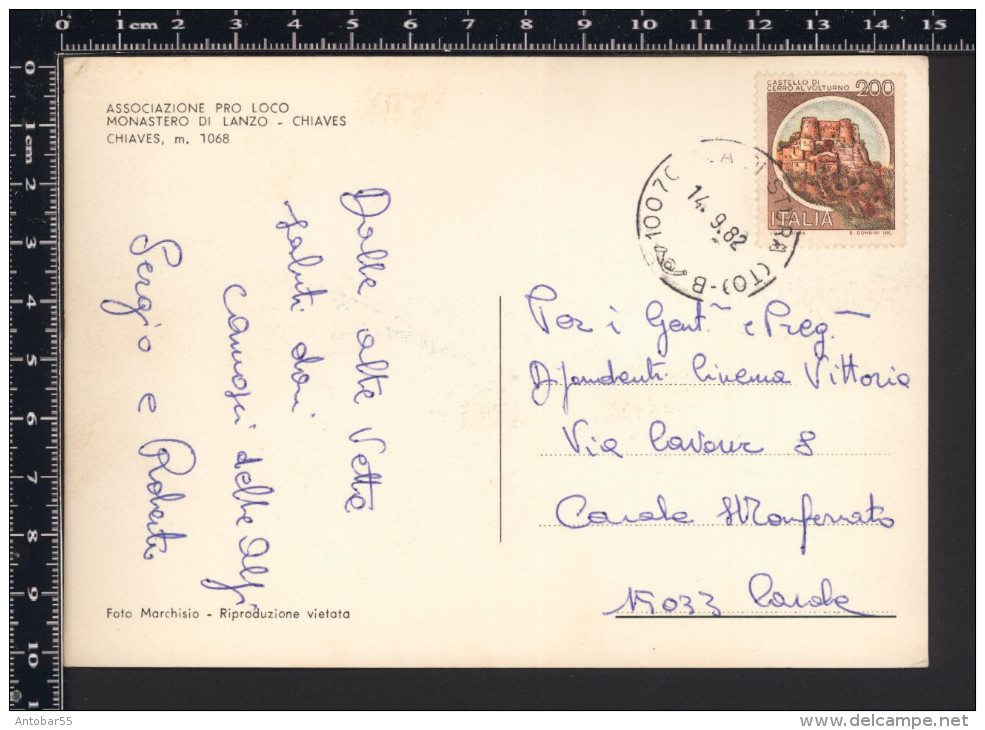 ASSOCIAZIONE PRO LOCO
MONASTERO DI LANZO - CHIAVES
CHIAVES, m. 1068
CASTELLO DI
CERRO AL VOLTURNO 200
ITALIA
14. 9.82
Dalle alte Vette
saluti dai
camosci delle Alpi
Sergio e Roberto
Per i Gent.mi e Preg.
Dipendenti Cinema Vittoria
Via Cavour 8
Casale Monferrato
15033 Casale
Foto Marchisio - Riproduzione vietata
0 1cm 2 3 4 5 6 7 8 9 10 11 12 13 14 15
0
1cm
2
3
4
5
6
7
8
9
10
1
Antobar55
delcampe.net